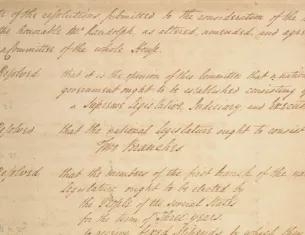 te of the resolutions submitted to the consideration of the
the honorable Mr. Randolph, as altered, amended, and agre
a Committee of the whole House.
Resolved that it is the opinion of this Committee that a nation
government ought to be established consisting of
a Supreme Legislative, Judiciary, and Execu
Resolved that the national Legislature ought to consist
Two Branches
Resolved that the members of the first branch of the na
Legislature ought to be elected by
the People of the several States
for the term of Three years.
to receive fixed Stipends by which they